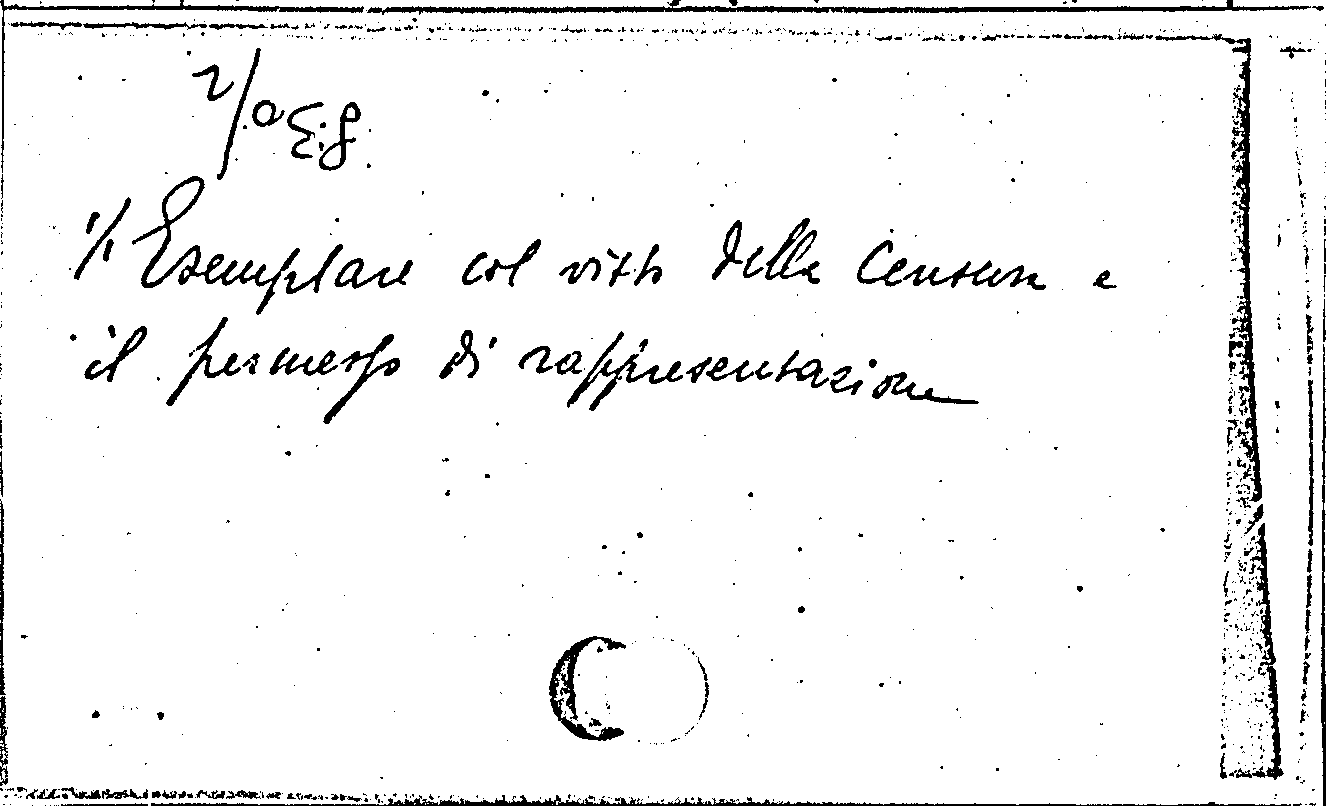 1/ Esemplare col visto della Censura e
il permesso di rappresentazione